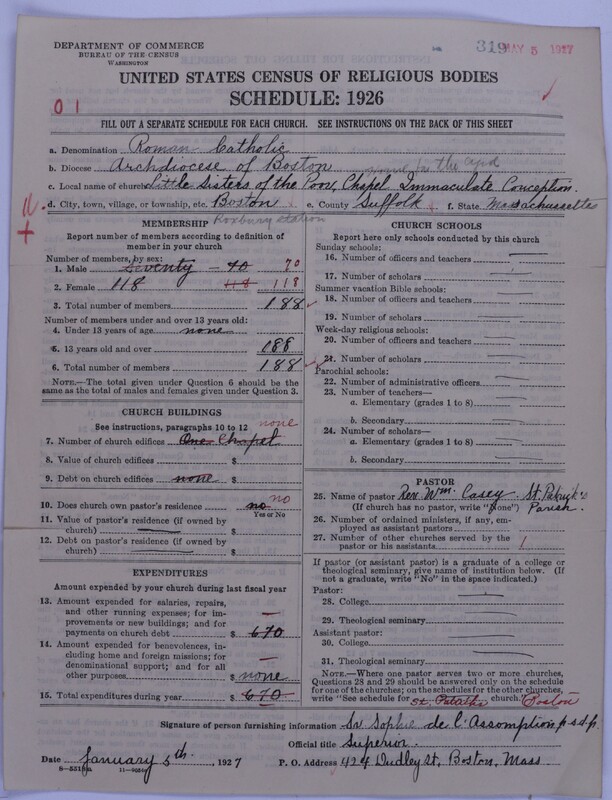 319 MAY 5 1927
DEPARTMENT OF COMMERCE
BUREAU OF THE CENSUS
WASHINGTON
UNITED STATES CENSUS OF RELIGIOUS BODIES
SCHEDULE: 1926
01
FILL OUT A SEPARATE SCHEDULE FOR EACH CHURCH. SEE INSTRUCTIONS ON THE BACK OF THIS SHEET
a. Denomination Roman Catholic
b. Diocese Archdiocese of Boston for the aged
c. Local name of church Little Sisters of the Poor, Chapel Immaculate Conception.
d. City, town, village, or township, etc. Boston e. County Suffolk f. State Massachusetts
Roxbury station
MEMBERSHIP
Report number of members according to definition of
member in your church
Number of members, by sex:
1. Male seventy - 70 70
2. Female 118 118 118
3. Total number of members 188
Number of members under and over 13 years old:
4. Under 13 years of age none
5. 13 years old and over 188
6. Total number of members 188
NOTE.—The total given under Question 6 should be the
same as the total of males and females given under Question 3.
CHURCH BUILDINGS
See instructions, paragraphs 10 to 12 none
7. Number of church edifices One Chapel
8. Value of church edifices $
9. Debt on church edifices none $
10. Does church own pastor's residence no no
Yes or No
11. Value of pastor's residence (if owned by
church) $
12. Debt on pastor's residence (if owned by
church) $
EXPENDITURES
Amount expended by your church during last fiscal year
13. Amount expended for salaries, repairs,
and other running expenses; for im-
provements or new buildings; and for
payments on church debt $ 670
14. Amount expended for benevolences, in-
cluding home and foreign missions; for
denominational support; and for all
other purposes $ none
15. Total expenditures during year $ 670
CHURCH SCHOOLS
Report here only schools conducted by this church
Sunday schools:
16. Number of officers and teachers
17. Number of scholars
Summer vacation Bible schools:
18. Number of officers and teachers
19. Number of scholars
Week-day religious schools:
20. Number of officers and teachers
21. Number of scholars
Parochial schools:
22. Number of administrative officers
23. Number of teachers—
a. Elementary (grades 1 to 8)
b. Secondary
24. Number of scholars—
a. Elementary (grades 1 to 8)
b. Secondary
PASTOR
25. Name of pastor Rev. Wm. Casey. St. Patrick's
(If church has no pastor, write "None") Parish.
26. Number of ordained ministers, if any, em-
ployed as assistant pastors
27. Number of other churches served by the
pastor or his assistants 1
If pastor (or assistant pastor) is a graduate of a college or
theological seminary, give name of institution below. (If
not a graduate, write "No" in the space indicated.)
Pastor:
28. College
29. Theological seminary
Assistant pastor:
30. College
31. Theological seminary
NOTE.—Where one pastor serves two or more churches,
Questions 28 and 29 should be answered only on the schedule
for one of the churches; on the schedules for the other churches,
write "See schedule for St. church." Boston
Signature of person furnishing information Sr. Sophie de l'Assomption p.s.d.p.
Official title Superior.
Date January 5th, 1927 P. O. Address 424 Dudley St, Boston, Mass